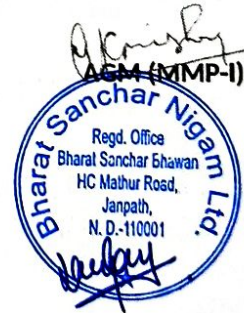 AGM (MMP-I)
Bharat Sanchar Nigam Ltd.
Regd. Office
Bharat Sanchar Bhawan
HC Mathur Road,
Janpath,
N. D.-110001